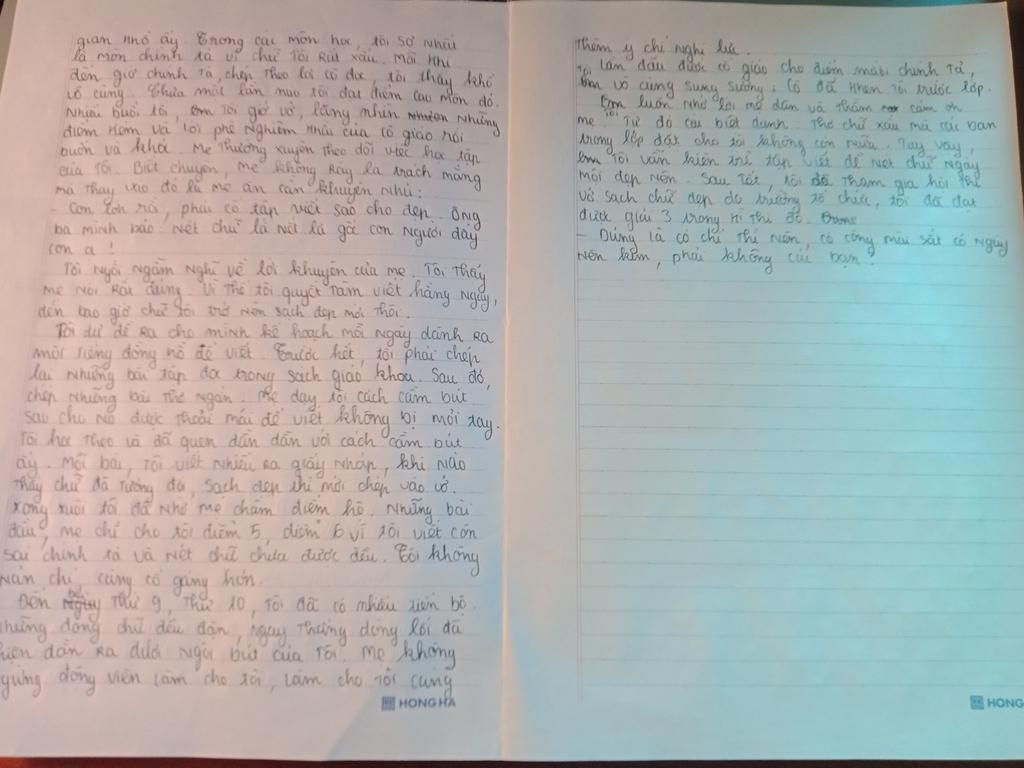 gian nhỏ ấy. Trong các môn học, tôi sợ nhất
là môn chính tả vì chữ Tôi Rất xấu. Mỗi khi
đến giờ chính tả, chép Theo lời cô đọc, tôi thấy khó
vô cùng. Chưa một lần nào tôi đạt điểm cao môn đó.
Nhiều buổi tối, tôi giở vở, lặng nhìn những
điểm kém và lời phê nghiêm khắc của cô giáo rồi
buồn và khóc. Mẹ Thường xuyên Theo dõi việc học tập
của Tôi. Biết chuyện, mẹ không Rầy la trách mắng
mà Thay vào đó là mẹ ân cần khuyên nhủ:
- Con lớn rồi, phải cố tập viết sao cho đẹp. Ông
bà mình bảo: Nét chữ là Nét là gốc con Người đấy
con ạ !
Tôi Ngồi Ngẫm Nghĩ về lời khuyên của mẹ. Tôi Thấy
mẹ Nói Rất đúng. Vì Thế tôi quyết Tâm viết hằng Ngày,
đến bao giờ chữ tôi trở Nên sạch đẹp mới Thôi.
Tôi dự đề Ra cho mình kế hoạch mỗi Ngày dành Ra
một tiếng đồng hồ để viết. Trước hết, tôi phải chép
lại Những bài tập đọc trong sách giáo khoa. Sau đó,
chép Những bài Thơ Ngắn. Mẹ dạy tôi cách cầm bút
sao cho Nó được Thoải mái để viết không bị mỏi tay.
Tôi học Theo và đã quen dần dần với cách cầm bút
ấy. Mỗi bài, Tôi viết Nhiều Ra giấy Nháp, khi Nào
Thấy chữ đã Tương đối, sạch đẹp thì mới chép vào vở.
Xong xuôi tôi đã Nhờ mẹ chấm điểm hộ. Những bài
đầu, mẹ chỉ cho tôi điểm 5, điểm 6 vì tôi viết còn
sai chính tả và Nét chữ chưa được đều. Tôi không
Nản chí, càng cố gắng hơn.
Đến bài Thứ 9, Thứ 10, Tôi đã có nhiều tiến bộ.
Những dòng chữ đều đặn, Ngay Thẳng dòng lối đã
hiện dần Ra dưới Ngòi bút của Tôi. Mẹ không
ngừng động viên làm cho tôi, làm cho Tôi càng
Thêm ý chí Nghị lực.
Lần đầu được cô giáo cho điểm mười chính Tả,
Tôi vô cùng sung sướng. Cô đã khen Tôi trước lớp.
Tôi luôn Nhớ lời mẹ dặn và Thầm cảm ơn
mẹ. Từ đó cái biệt danh: Thợ chữ xấu mà các bạn
trong lớp đặt cho tôi không còn Nữa. Tuy vậy,
Tôi vẫn kiên trì tập viết để Nét chữ Ngày
một đẹp hơn. Sau Tết, tôi đã Tham gia hội thi
vở sạch chữ đẹp do trường tổ chức, tôi đã đạt
được giải 3 trong kì Thi đó.
- Đúng là có chí Thì Nên, có công mài sắt có Ngày
Nên kim, phải không các bạn?
HONG HA
HONG